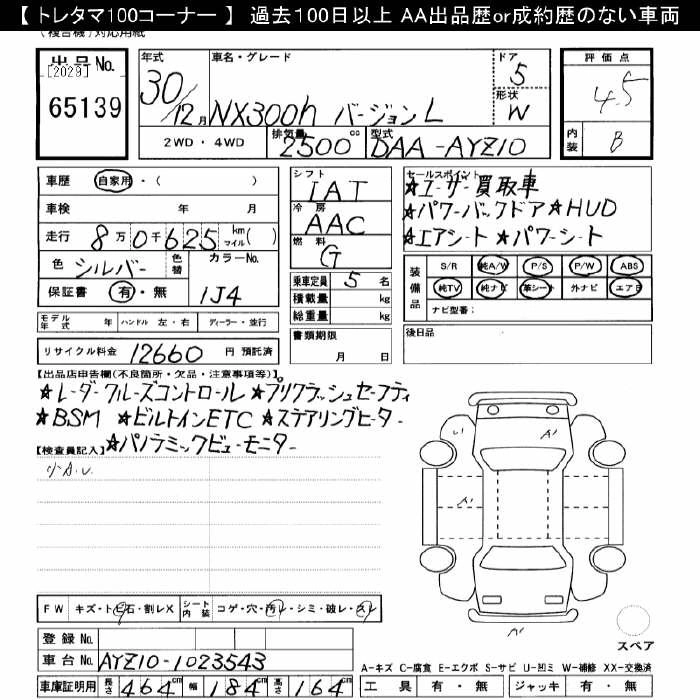 【 トレタマ100コーナー 】 過去100日以上 AA出品歴or成約歴のない車両
（複合機）対応用紙
出品 No. [2029] 65139
年式 30/12月
車名・グレード NX300h バージョンL
ドア 5
形状 W
2WD ・ 4WD
排気量 2500 cc
型式 DAA-AYZ10
評価点 4.5
内装 B
車歴 自家用・( )
車検 年 月
走行 8万0千625 km マイル( )
色 シルバー 色替
カラーNo. 1J4
保証書 有・無
シフト IAT
冷房 AAC
燃料 G
乗車定員 5 名
積載量 kg
総重量 kg
書類期限 月 日
セールスポイント
★ユーザー買取車
★パワーバックドア★HUD
★エアシート ★パワーシート
装備品 S/R 純A/W P/S P/W ABS
純TV 純ナビ 革シート 外ナビ エアB
ナビ型番：
後日品
モデル年式 年 ハンドル 左・右 ディーラー・並行
リサイクル料金 12660 円 預託済
【出品店申告欄(不良箇所・欠品・注意事項等)】
★レーダークルーズコントロール ★プリクラッシュセーフティ
★BSM ★ビルトインETC ★ステアリングヒーター
★パノラミックビューモニター
【検査員記入】
FW キズ・トビ石・割レX シート内装 コゲ・穴・汚レ・シミ・破レ・スレ
登録 No.
車台 No. AYZ10-1023543
車庫証明用 長さ 464cm 幅 184cm 高さ 164cm
スペア
A−キズ C−腐食 E−エクボ S−サビ U−凹ミ W−補修 XX−交換済
工具 有・無 ジャッキ 有・無